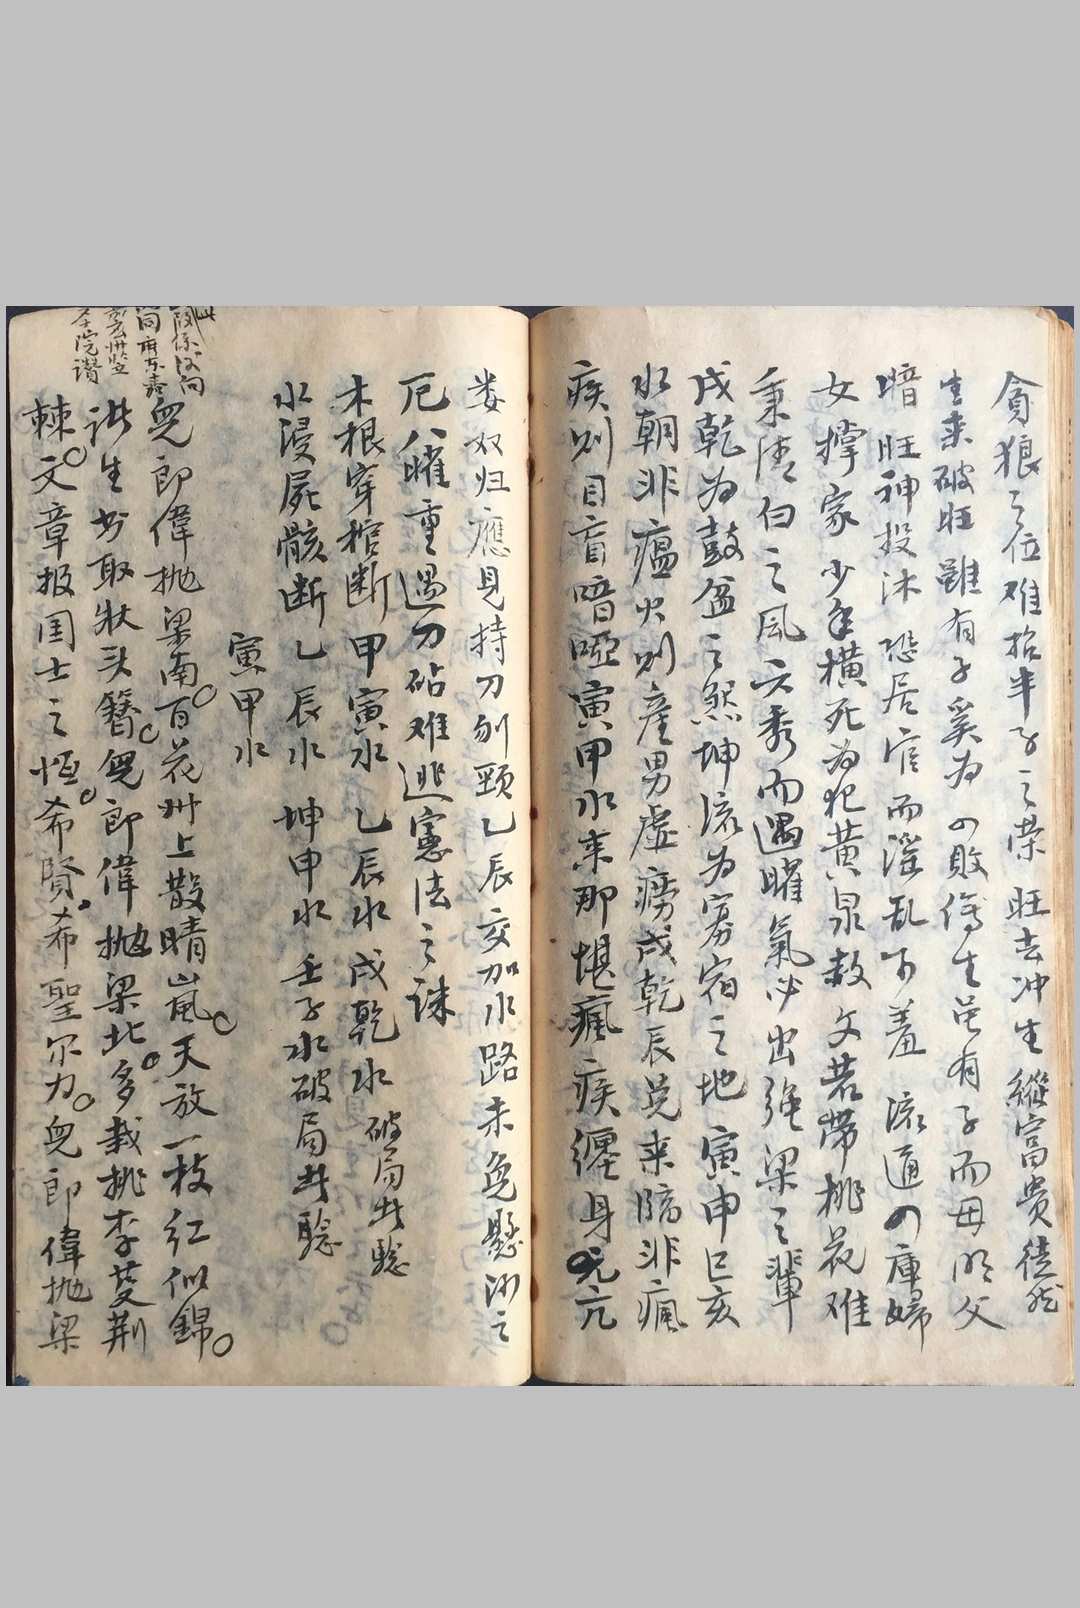 貪狼之位难招半子之荣旺去冲生縱富贵徒然
生来破旺雖有子奚为の敗傷生虽有子而毋尅父
暗旺神投沐恐居官而滛乱可羞流通の庫婦
女撑家少年横死为犯黄泉赦文若带桃花难
秉清白之風六秀而遇曜氣必出强梁之輩
戌乾为鼓盆之煞坤流为寡宿之地寅申巳亥
水朝非瘟火则産男虚痨戌乾辰兑来暗非瘋
疾则目盲喑啞寅甲水来那堪瘋疾纒身元亢
娄奴归應見持刀刎頸乙辰交加水路未免懸沙之
厄八曜重遇刀砧难逃憲法之誅
木根穿棺断甲寅水乙辰水戌乾水破局出騐
水浸屍骸断乙辰水坤申水壬子水破局出騐
寅甲水
兒郎偉抛梁南百花卅上散晴嵐天放一枝红似錦
诜生於取狀头簪兒郎偉抛梁北多栽挑李芟荆
棘文章报国士之恒希賢希聖尔力兒郎偉抛梁